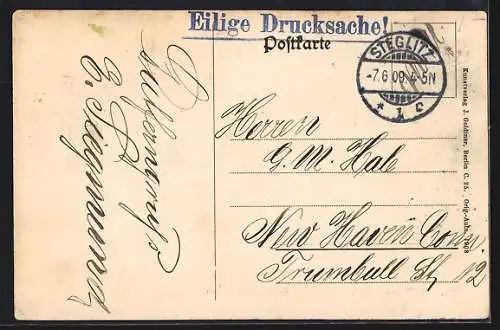 Eilige Drucksache!
Postkarte
STEGLITZ
-7.6.09. 4-5N
* 1 c
Herren
G. M. Hab
New Haven Conn.
Trumbull St, 12
E. Siegmund
Kunstverlag J. Goldiner, Berlin C. 25. Orig.-Aufn. 1908